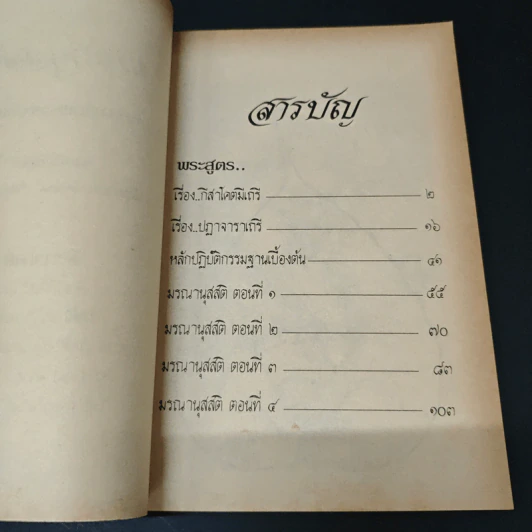 สารบัญ
พระสูตร..
เรื่อง..กีสาโคตมีเถรี ๒
เรื่อง..ปฏาจาราเถรี ๑๖
หลักปฏิบัติกรรมฐานเบื้องต้น ๔๑
มรณานุสสติ ตอนที่ ๑ ๕๕
มรณานุสสติ ตอนที่ ๒ ๗๐
มรณานุสสติ ตอนที่ ๓ ๘๓
มรณานุสสติ ตอนที่ ๔ ๑๐๓